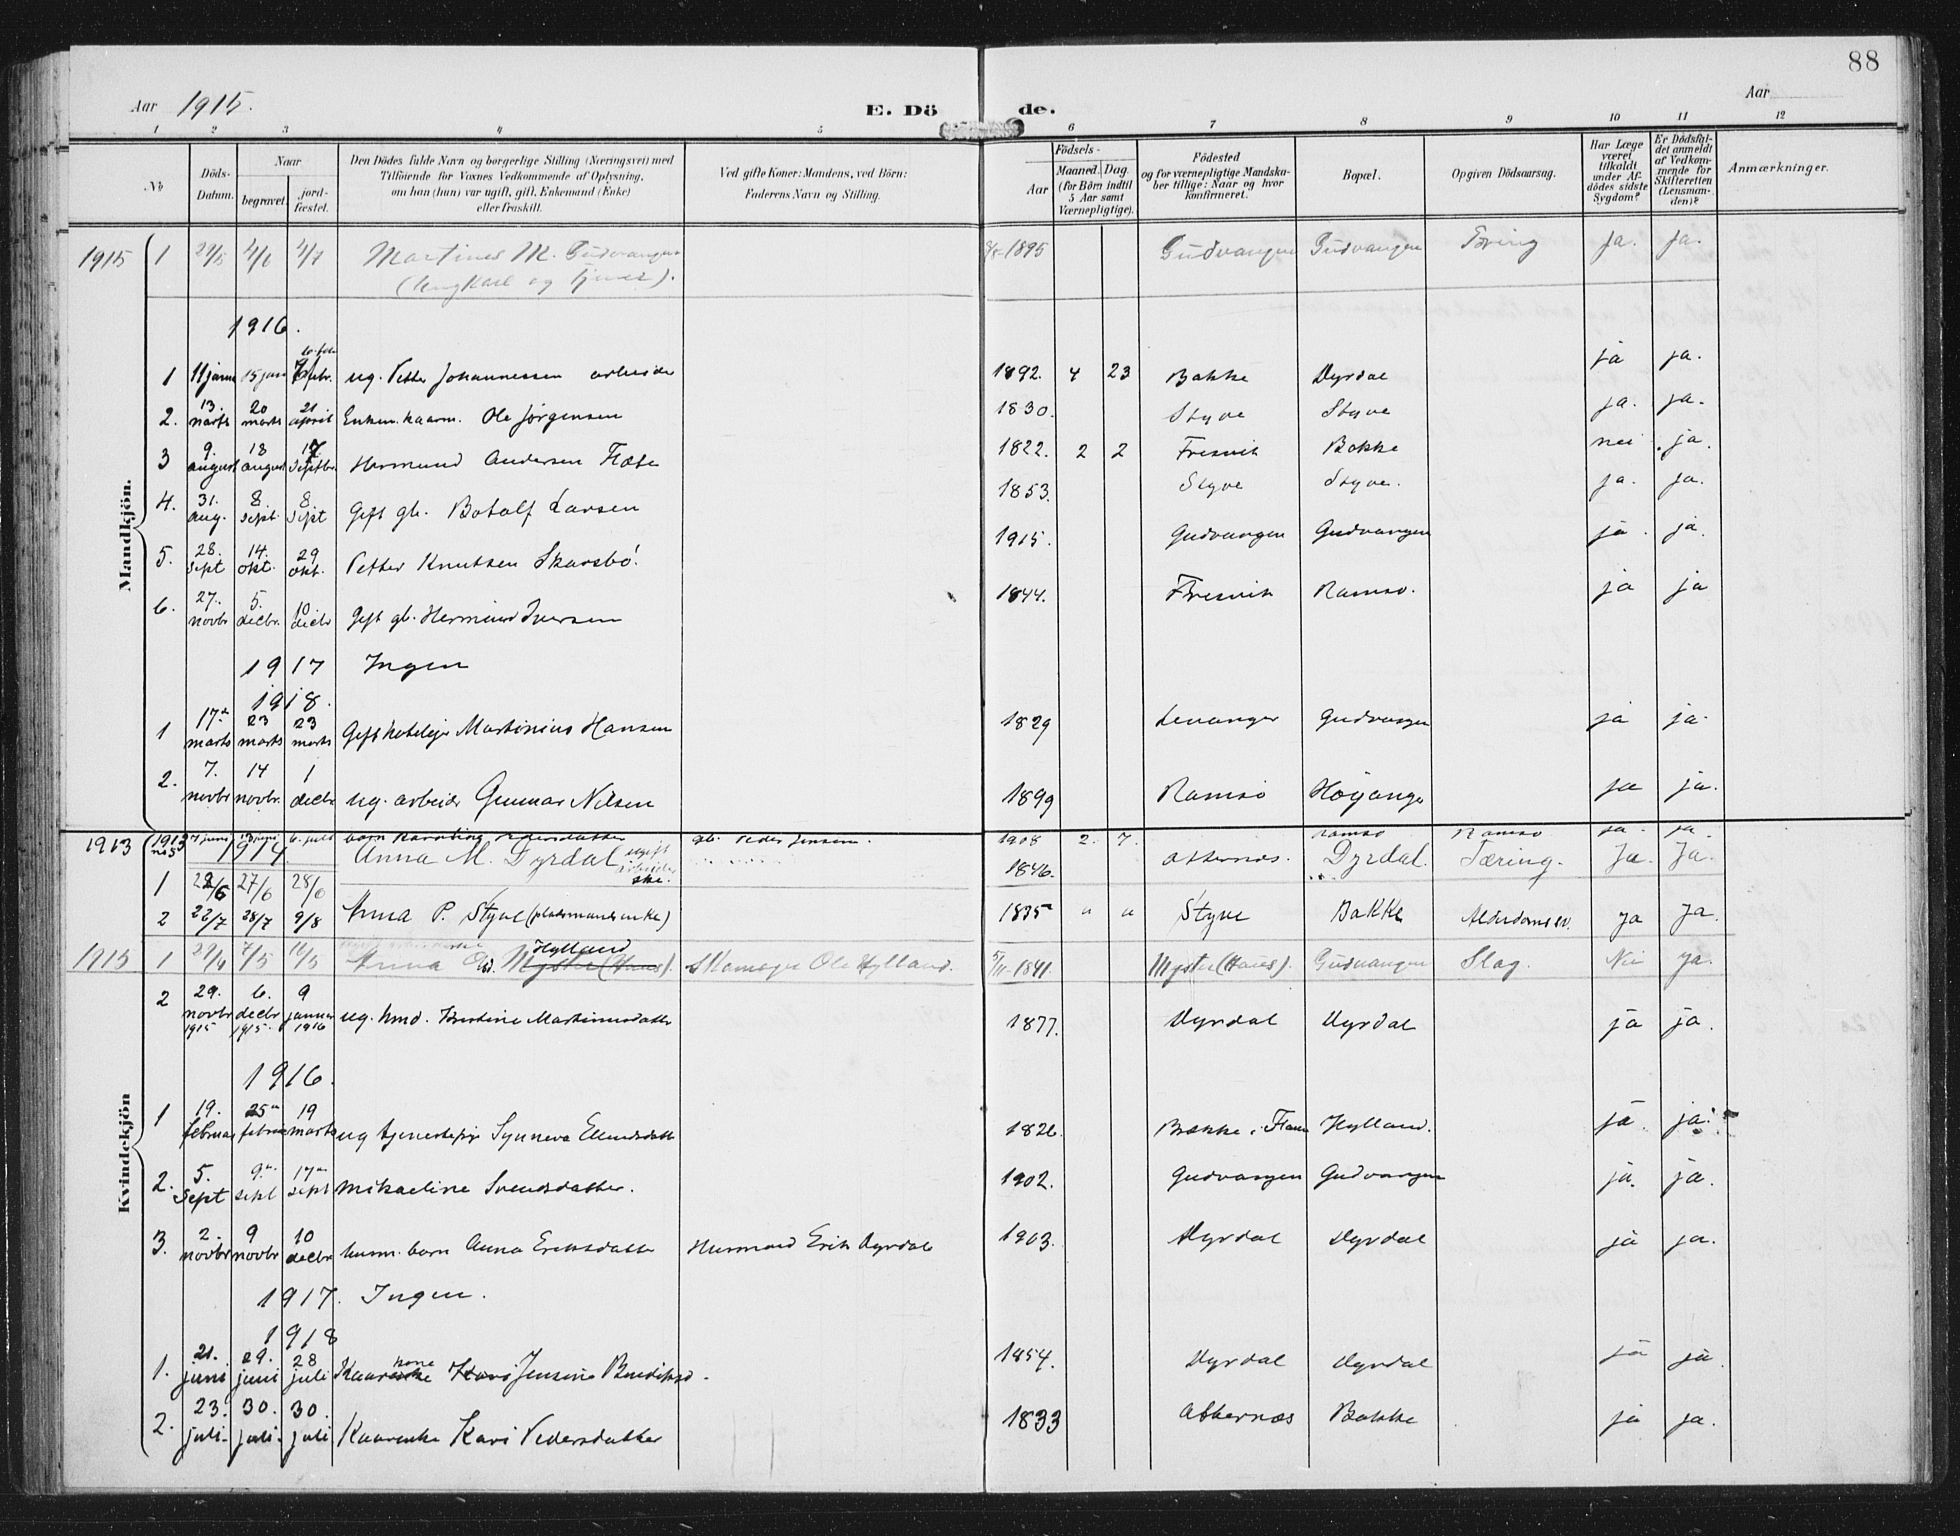 88
Aar 1915.
E. Döde.
Aar
1 2 3 4 5 6 7 8 9 10 11 12
No
Döds-Datum.
Naar
begravet.
jord-fæstet.
Den Dödes fulde Navn og borgerlige Stilling (Næringsvei) med
Tilföiende for Voxnes Vedkommende af Oplysning,
om han (hun) var ugift, gift, Enkemand (Enke)
eller fraskilt.
Ved gifte Koner: Mandens, ved Börn:
Faderens Navn og Stilling.
Födsels-
Aar
Maaned. Dag.
(for Börn indtil
5 Aar samt
Værnepligtige).
Födested
og for værnepligtige Mandska-
ber tillige: Naar og hvor
konfirmeret.
Bopæl.
Opgiven Dödsaarsag.
Har Læge
været
tilkaldt
under Af-
dödes sidste
Sygdom?
Er Dödsfal-
det anmeldt
af Vedkom-
mende for
Skifteretten
(Lensman-
den)?
Anmærkninger.
Mandkjön.
1915 1 29/5 4/6 4/7 Martinus M. Gudvangen 1895 Gudvangen Gudvangen Tæring Ja. Ja.
(Ungkarl og
1916.
1 11 januar 15 jan 7 febr. ug. Petter Johannessen arbeider 1892. 4 23 Bakke Dyrdal ja ja.
2. 13. marts 20 marts 21 april Enkem. kaarm. Ole Jørgensen 1830. Styve Styve ja. ja.
3 9. august 18 august 17 septbr. Hermund Andersen 1822. 2 2 Fresvik Bakke nei ja.
4. 31. aug. 8. sept. 8 sept Gift gb. Botolf Larsen 1853. Styve Styve. ja. ja.
5. 28. sept 14. okt. 29 okt. Petter Knutsen Skarsbö. 1915. Gudvangen Gudvangen ja. ja.
6. 27. novbr 5. decbr. 10 decbr Gift gb. Hermund Iversen 1844. Fresvik Ramsø. ja ja
1917 Ingen
1918.
1 17de marts 23 marts 23 marts Gift Martinius Hansen 1829 Levanger Gudvangen ja ja.
2. 7. novbr 14 novbr. 1 decbr ug. arbeider Gunnar Nilsen 1899 Ramsø Høyanger ja ja.
Kvindekjön
1913 (1913 no 5 7 juni 13 juni 6. juli barn Pedersdatter gb. Peder Jensen. 1908 2. 7. Ramsø Ramsø ja. ja.
1914
1 22/6 27/6 28/6 Anna M. Dyrdal ugift arbeiderske. 1846. Atternes. Dyrdal. Tæring. Ja. Ja.
2 22/7 28/7 9/8 Anna P. Styve (pladsmandsenke) 1835 " " Styve Bakke Alderdomssv. ja Ja.
1915 1 29/4 7/5 16/5 Anna Hylland Myster (Haus). Ole Hylland. 5/11-1841. Myster (Haus). Gudvangen Slag. Nei ja.
2 29. novbr 1915 6. decbr 1915. 9 januar 1916 ug. hmd. Kristine Martinusdatter 1877. Dyrdal Dyrdal ja ja.
1916.
1 19. februar 25de februar 19 marts ug tjenestepige Synneva Ellendsdatter 1826. Brekke i Flaam Hylland. ja. ja.
2. 5. sept 9de sept 17de sept Mikaeline Svendsdatter. 1902. Gudvangen Gudvangen ja. ja.
3. 2. novbr 9 novbr 10 decbr husm. barn Anna Eriksdatter Husmand Erik Dyrdal 1903. Dyrdal Dyrdal ja ja.
1917. Ingen.
1918
1. 21. juni 29. juni 28 juli Kaarkone Jensine Bendiksd. 1854. Dyrdal Dyrdal ja ja.
2. 23. juli. 30. juli. 30. juli Kaarenke Kari Pedersdatter 1833 Atternæs Bakke ja ja.